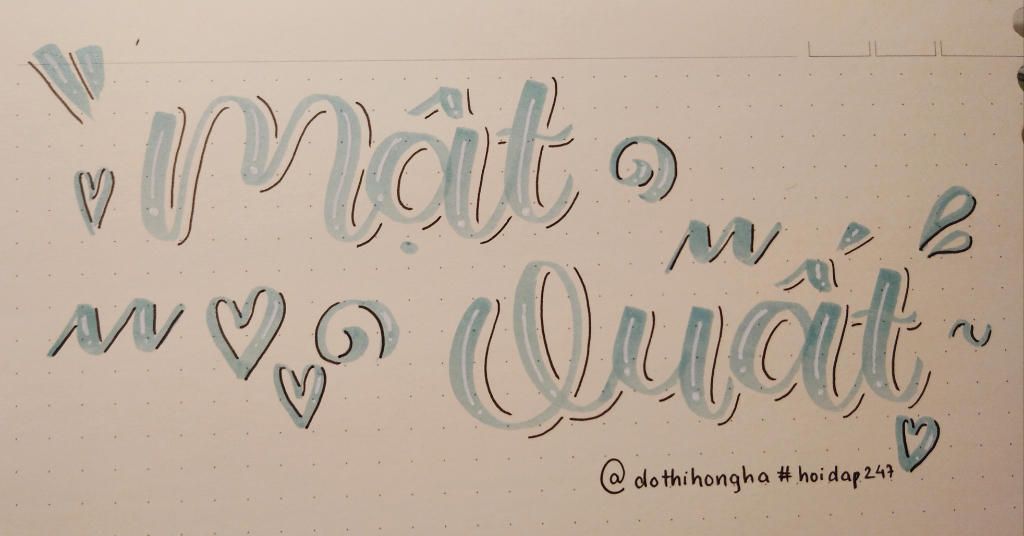 Mật
Quất
@dothihongha #hoidap247